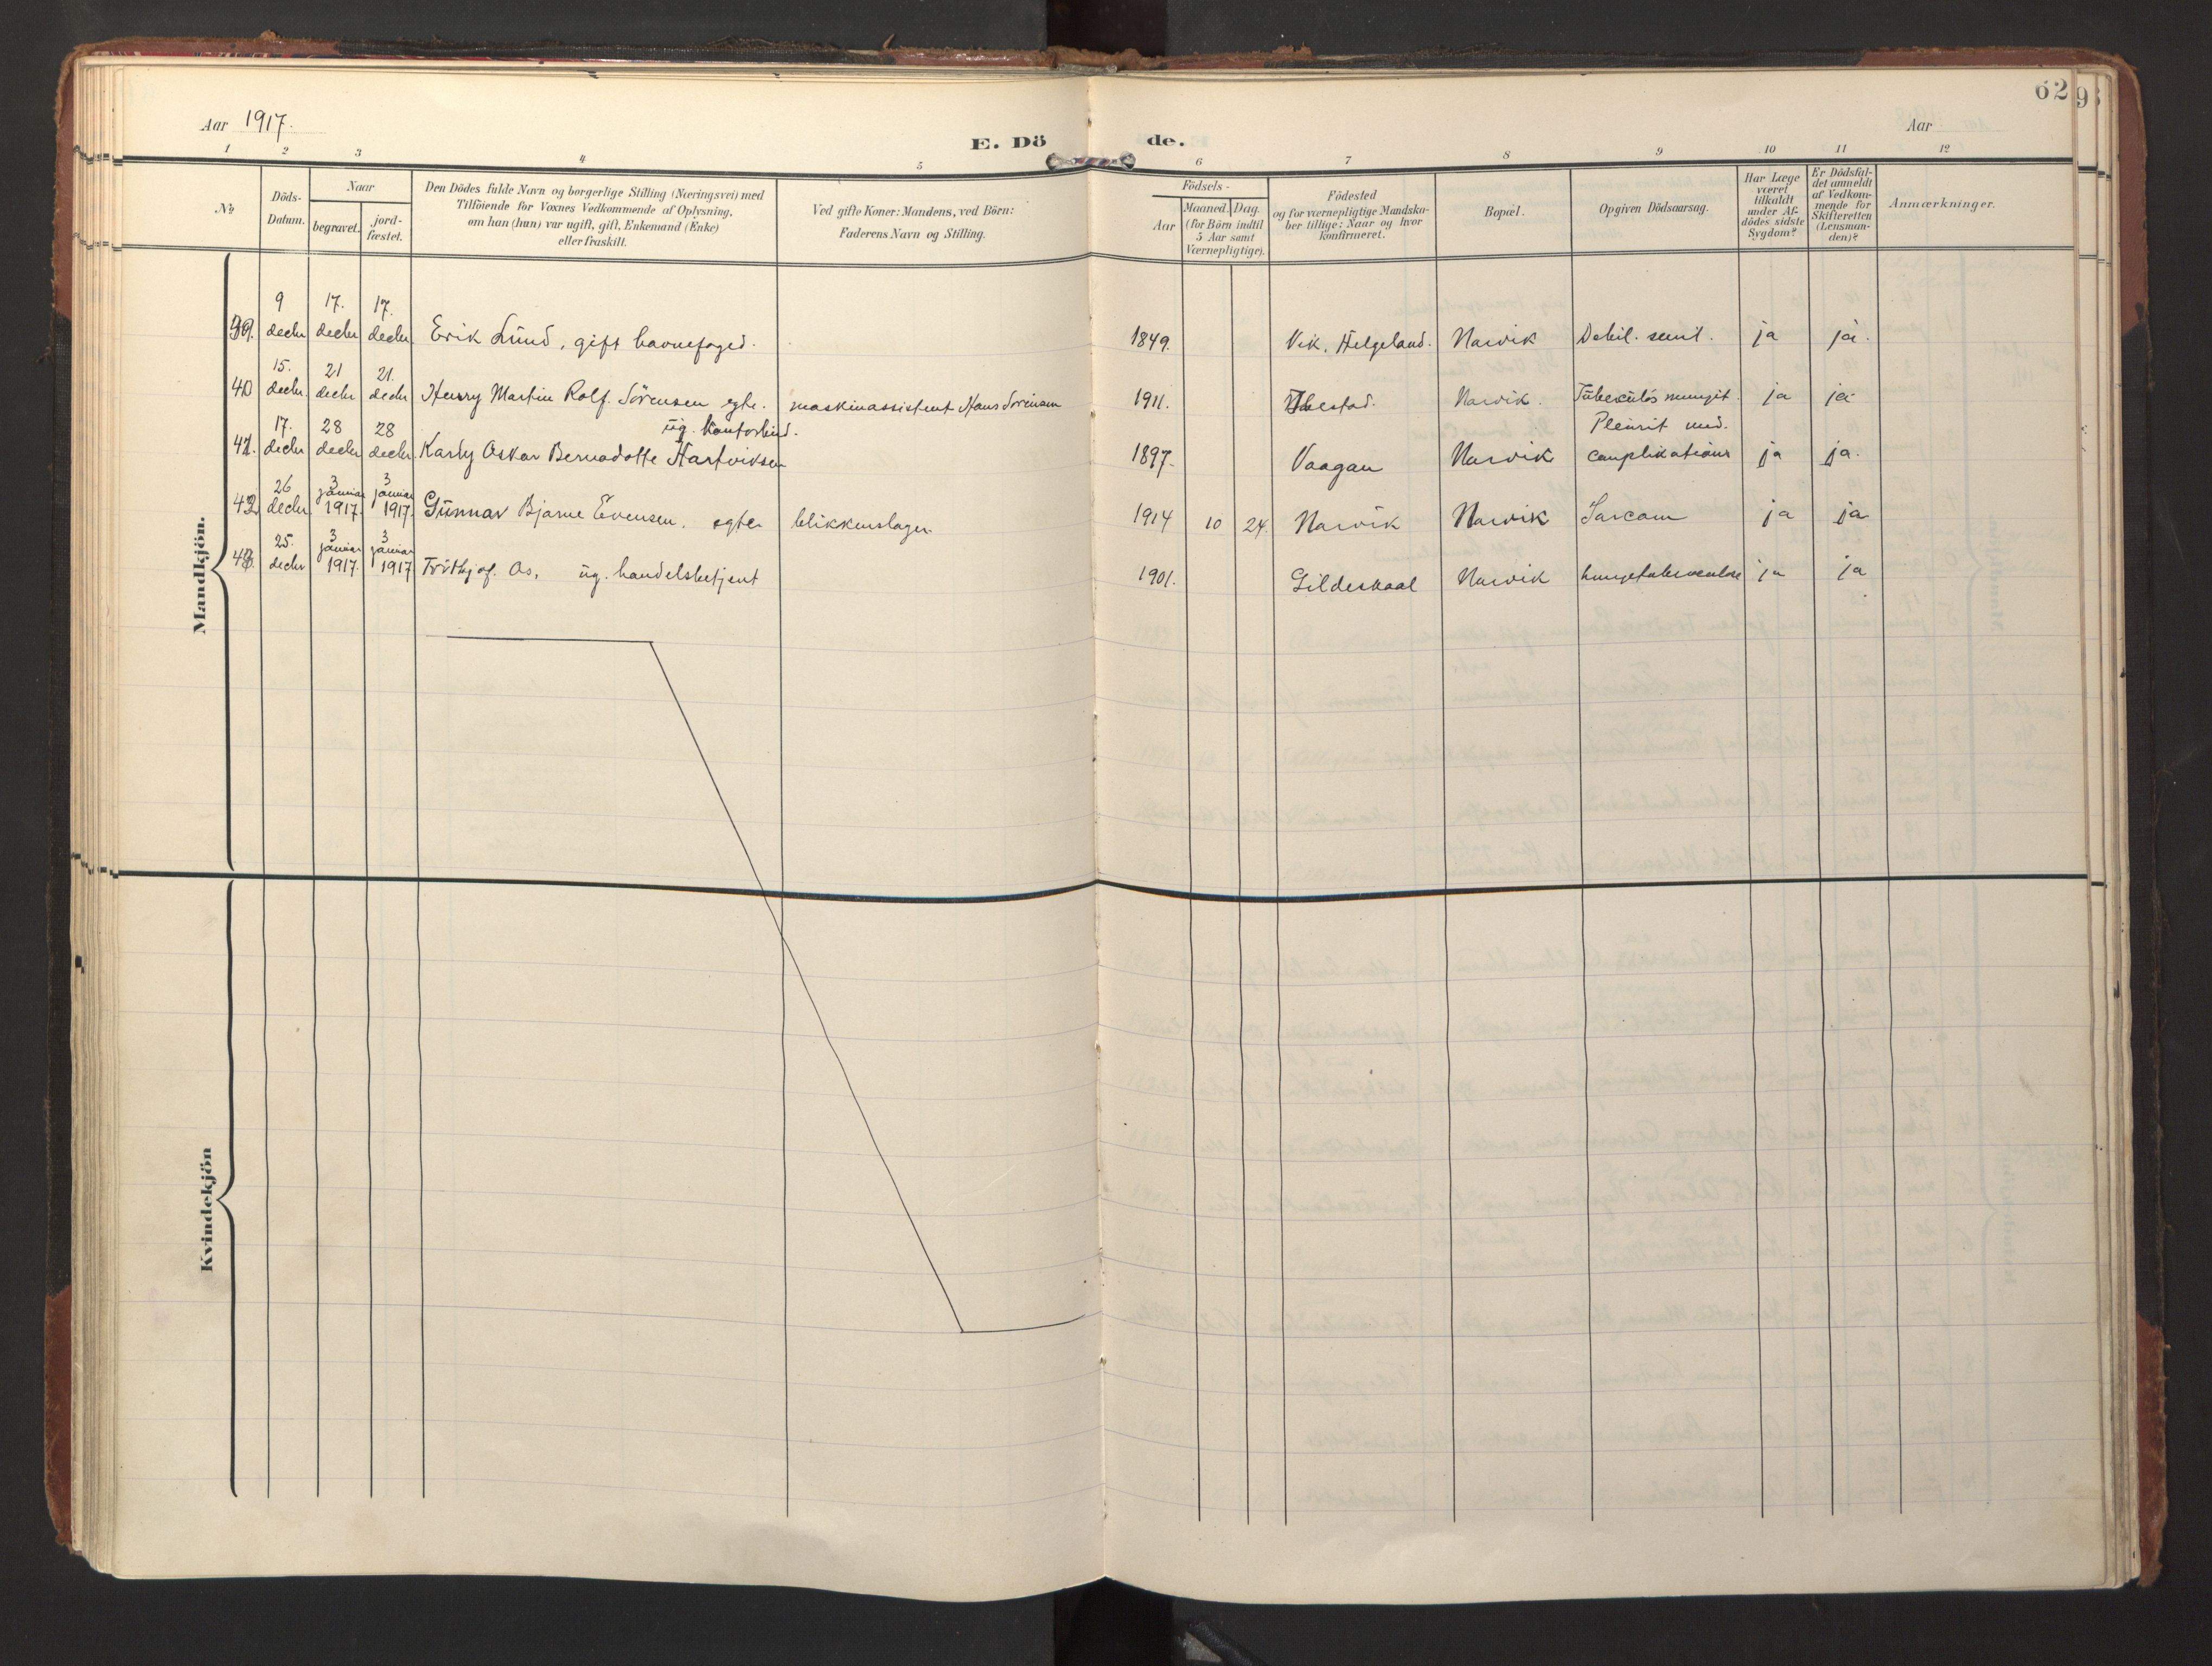 62
Aar 1917.
E. Döde.
Aar
1 2 3 4 5 6 7 8 9 10 11 12
No
Döds-Datum.
Naar
begravet.
jord-fæstet.
Den Dödes fulde Navn og borgerlige Stilling (Næringsvei) med
Tilföiende for Voxnes Vedkommende af Oplysning,
om han (hun) var ugift, gift, Enkemand (Enke)
eller fraskilt.
Ved gifte Koner: Mandens, ved Börn:
Faderens Navn og Stilling.
Födsels-
Aar
Maaned. Dag.
(for Börn indtil
5 Aar samt
Værnepligtige).
Födested
og for værnepligtige Mandska-
ber tillige: Naar og hvor
konfirmeret.
Bopæl.
Opgiven Dödsaarsag.
Har Læge
været
tilkaldt
under Af-
dödes sidste
Sygdom?
Er Dödsfal-
det anmeldt
af Vedkom-
mende for
Skifteretten
(Lensman-
den)?
Anmærkninger.
Mandkjön.
9 17. 17.
39. decbr decbr decbr Erik Lund, gift havnefoged. 1849. Vik, Helgeland. Narvik Debil. senil. ja ja.
15. 21 21.
40 decbr. decbr decbr Henry Martin Rolf Sörensen egte. maskinassistent Hans Sörensen 1911. Ibestad. Narvik. Tüberkülös mningit. ja ja
17. 28 28 üg. Kontorbud. Pleürit med.
41. decbr decbr decbr. Karly Oskar Bernadotte Hartviksen 1897. Vaagan Narvik complikations ja ja.
26 3 3
42 decbr januar 1917. januar 1917. Günnar Bjarne Evensen. egte blikkenslager 1914 10 24. Narvik Narvik Sarcom ja ja
25. 3 3
43. decbr januar 1917. januar 1917 Frithjof Os, üg. handelsbetjent 1901. Gildeskaal Narvik lungetuberculose ja ja
Kvindekjön